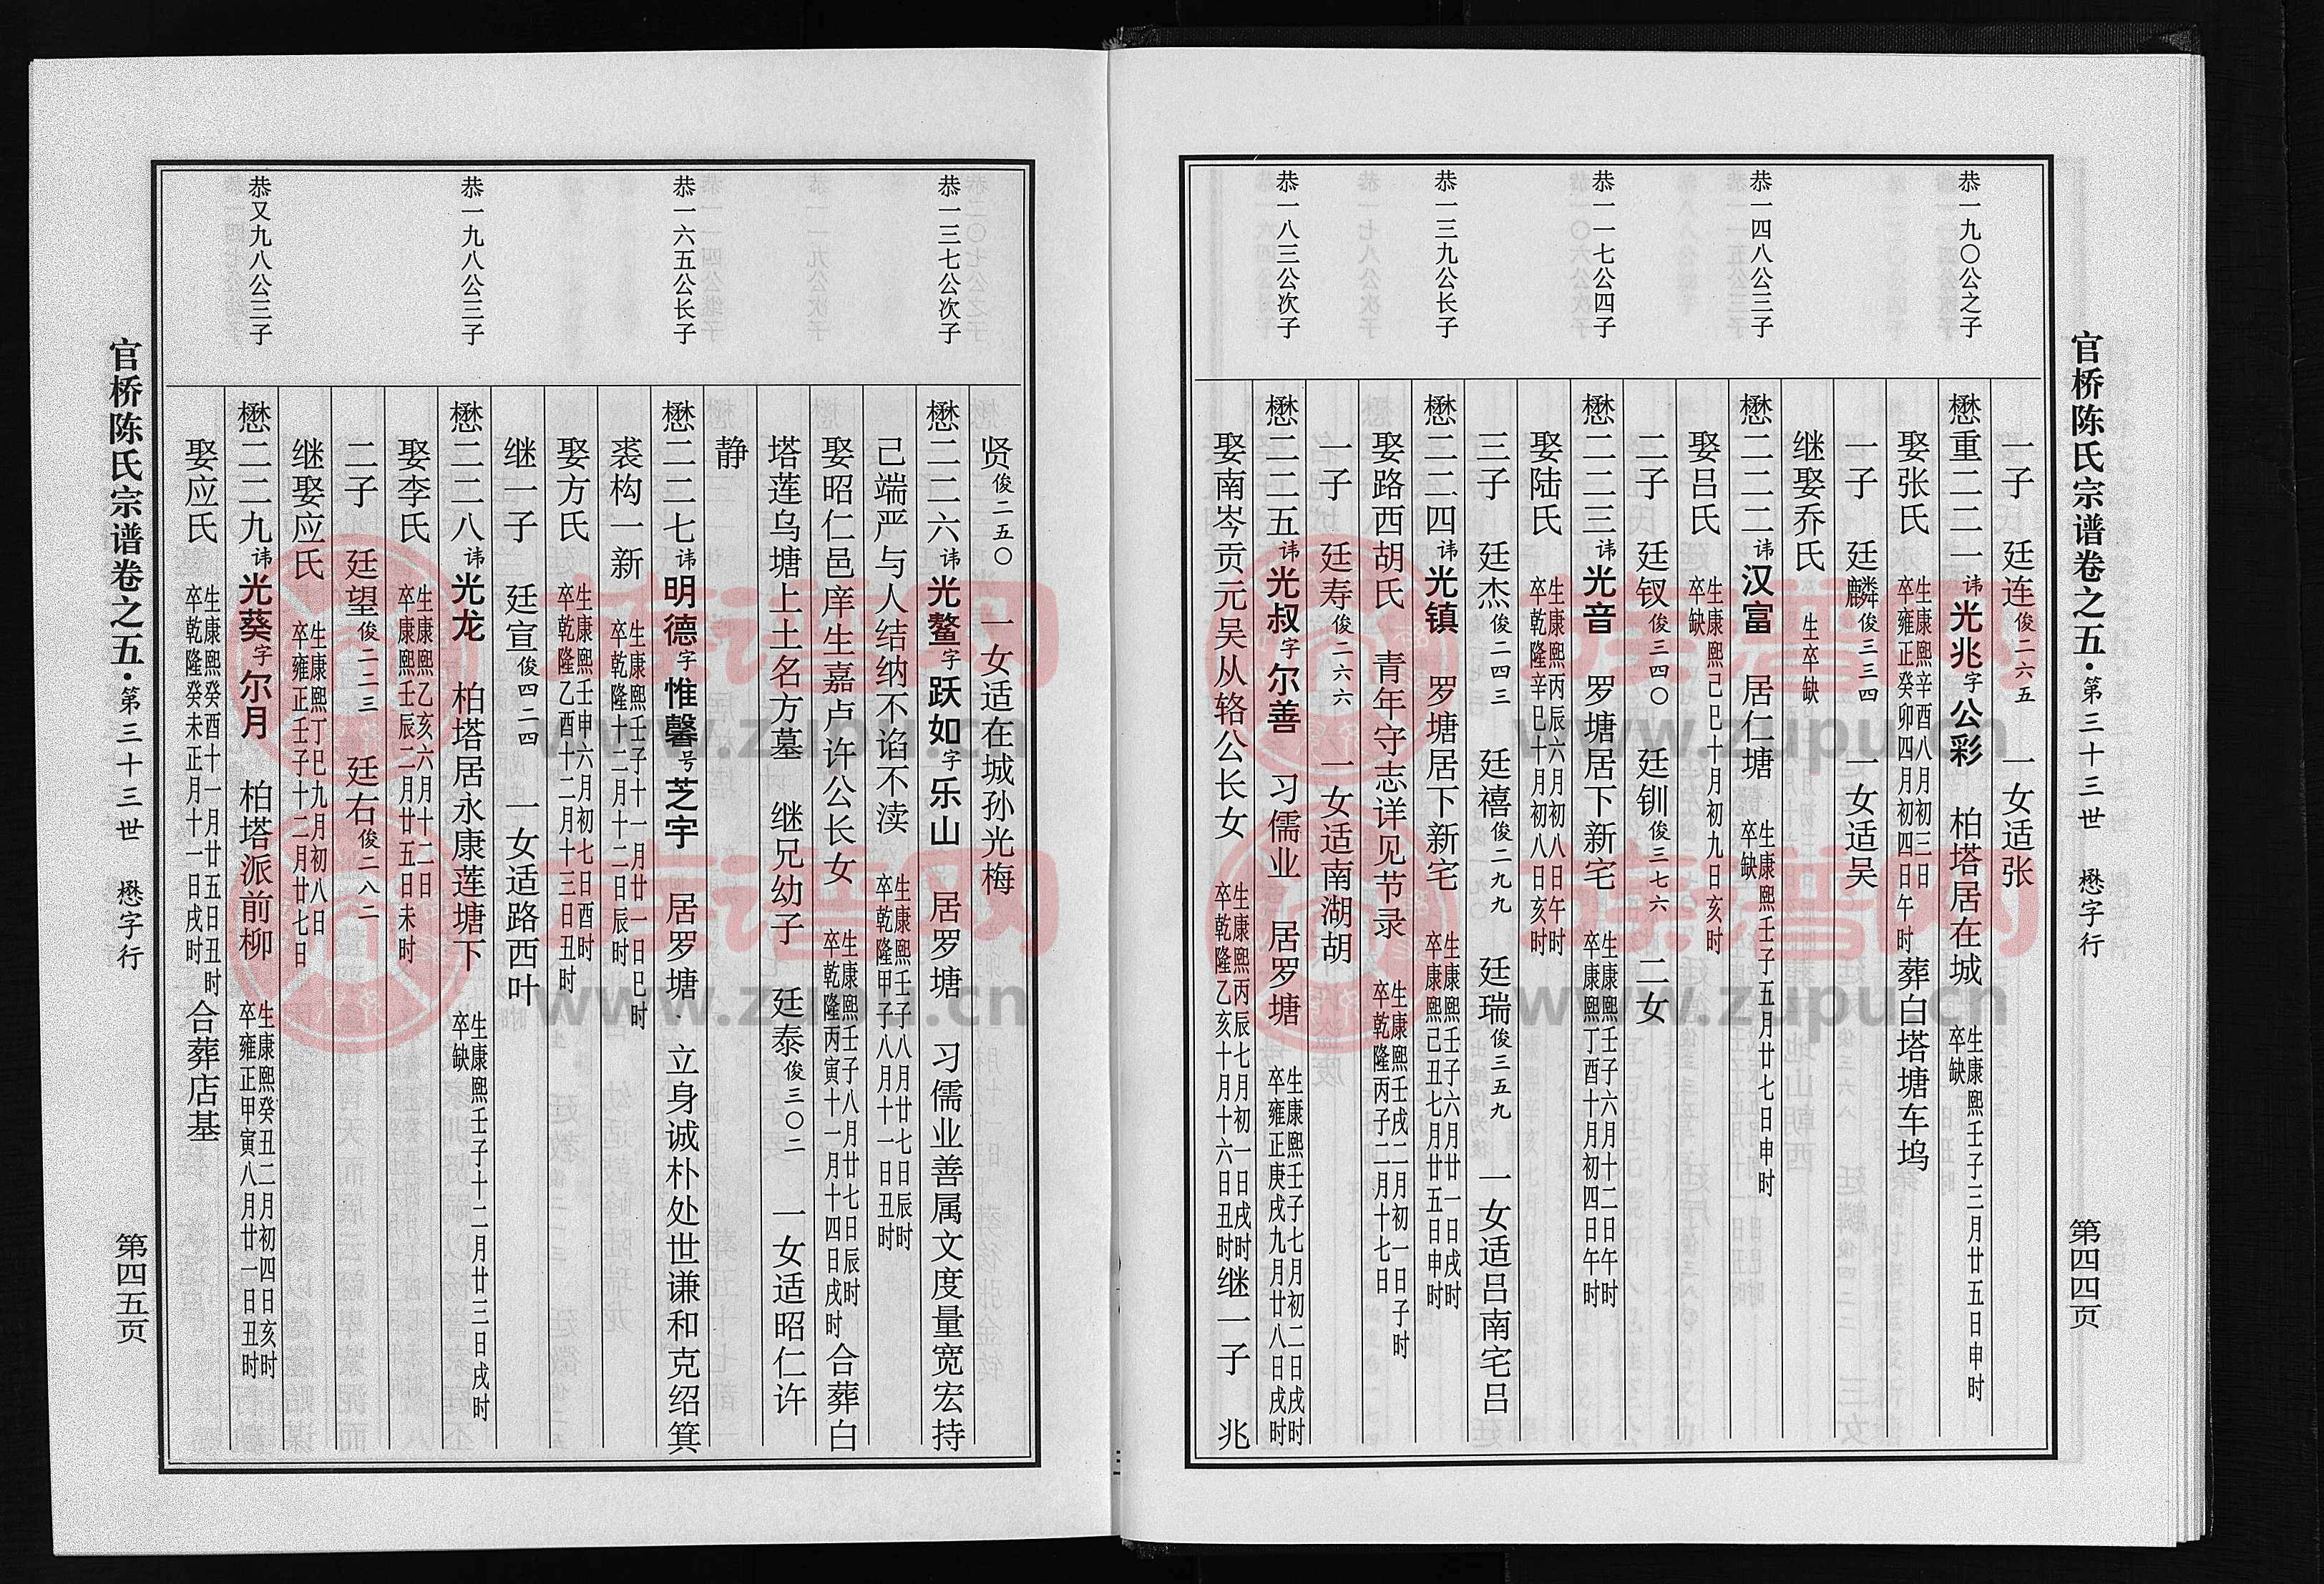 官桥陈氏宗谱卷之五·第三十三世 懋字行 第四四页
一子 廷连俊二六五 一女适张
恭一九〇公之子
懋重二二一讳光兆字公彩 柏塔居在城 生康熙壬子三月廿五日申时 卒缺
娶张氏 生康熙辛酉八月初三日 卒雍正癸卯四月初四日午时 葬白塔塘车坞
一子 廷麟俊三三四 一女适吴
继娶乔氏 生卒缺
恭一四八公三子
懋二二二讳汉富 居仁塘 生康熙壬子五月廿七日申时 卒缺
娶吕氏 生康熙己巳十月初九日亥时 卒缺
二子 廷钗俊三四〇 廷钏俊三七六 二女
恭一一七公四子
懋二二三讳光音 罗塘居下新宅 生康熙壬子六月十二日午时 卒康熙丁酉十月初四日午时
娶陆氏 生康熙丙辰六月初八日午时 卒乾隆辛巳十月初八日亥时
三子 廷杰俊二四三 廷禧俊二九九 廷瑞俊三五九 一女适吕南宅吕
恭一三九公长子
懋二二四讳光镇 罗塘居下新宅 生康熙壬子六月廿一日戌时 卒康熙己丑七月廿五日申时
娶路西胡氏 青年守志详见节录 生康熙壬戌二月初一日子时 卒乾隆丙子二月十七日
一子 廷寿俊二六六 一女适南湖胡
恭一八三公次子
懋二二五讳光叔字尔善 习儒业 居罗塘 生康熙壬子七月初二日戌时 卒雍正庚戌九月廿八日戌时
娶南岑贡元吴从辂公长女 生康熙丙辰七月初一日戌时 卒乾隆乙亥十月十六日丑时 继一子 兆
贤俊二五〇 一女适在城孙光梅
恭一三七公次子
懋二二六讳光鳌字跃如字乐山 居罗塘 习儒业善属文度量宽宏持
己端严与人结纳不谄不渎 生康熙壬子八月廿七日辰时 卒乾隆甲子八月十一日丑时
娶昭仁邑庠生嘉卢许公长女 生康熙壬子八月廿七日辰时 卒乾隆丙寅十一月十四日戌时 合葬白
塔莲乌塘上土名方墓 继兄幼子 廷泰俊三〇二 一女适昭仁许
静
恭一六五公长子
懋二二七讳明德字惟馨号芝宇 居罗塘 立身诚朴处世谦和克绍箕
裘构一新 生康熙壬子十一月廿一日巳时 卒乾隆十二月十二日辰时
娶方氏 生康熙壬申六月初七日酉时 卒乾隆乙酉十二月十三日丑时
继一子 廷宣俊四二四 一女适路西叶
恭一九八公三子
懋二二八讳光龙 柏塔居永康莲塘下 生康熙壬子十二月廿三日戌时 卒缺
娶李氏 生康熙乙亥六月十二日 卒康熙壬辰二月廿五日未时
二子 廷望俊二二三 廷右俊二八二
继娶应氏 生康熙丁巳九月初八日 卒雍正壬子十二月廿七日
恭又九八公三子
懋二二九讳光葵字尔月 柏塔派前柳 生康熙癸丑二月初四日亥时 卒雍正甲寅八月廿一日丑时
娶应氏 生康熙癸酉十一月廿五日丑时 卒乾隆癸未正月十一日戌时 合葬店基
官桥陈氏宗谱卷之五·第三十三世 懋字行 第四五页
族谱网
www.zupu.cn
族谱网
www.zupu.cn
族谱网
www.zupu.cn
族谱网
www.zupu.cn